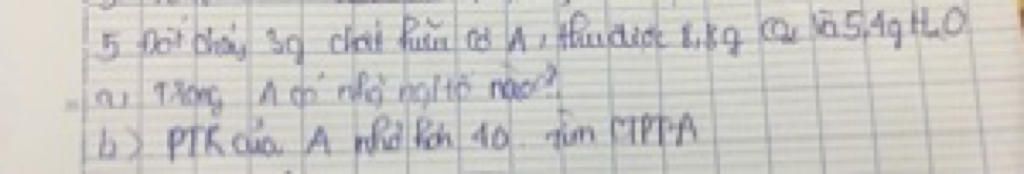 5 Đốt cháy 3g chất hữu cơ A, thu được 8,8g CO2 và 5,4g H2O
a, Trong A có nhg ngtố nào?
b) PTK của A nhỏ hơn 40. Tìm CTPT A